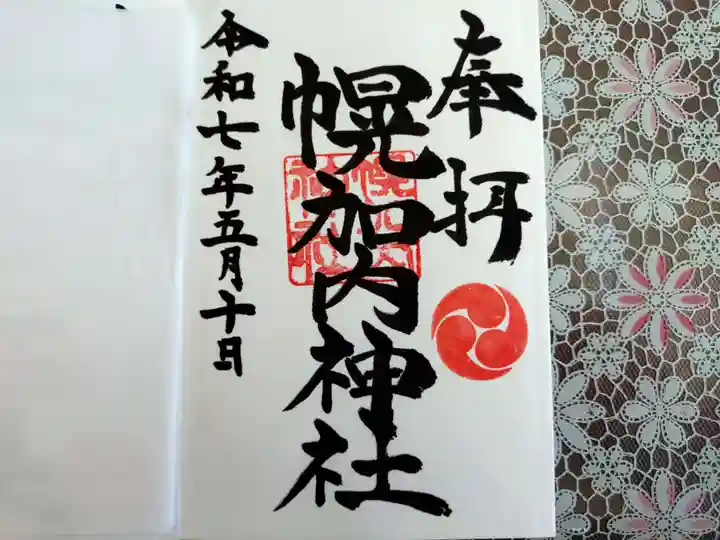 奉拝
幌加内神社
幌加内
神社
令和七年五月十日